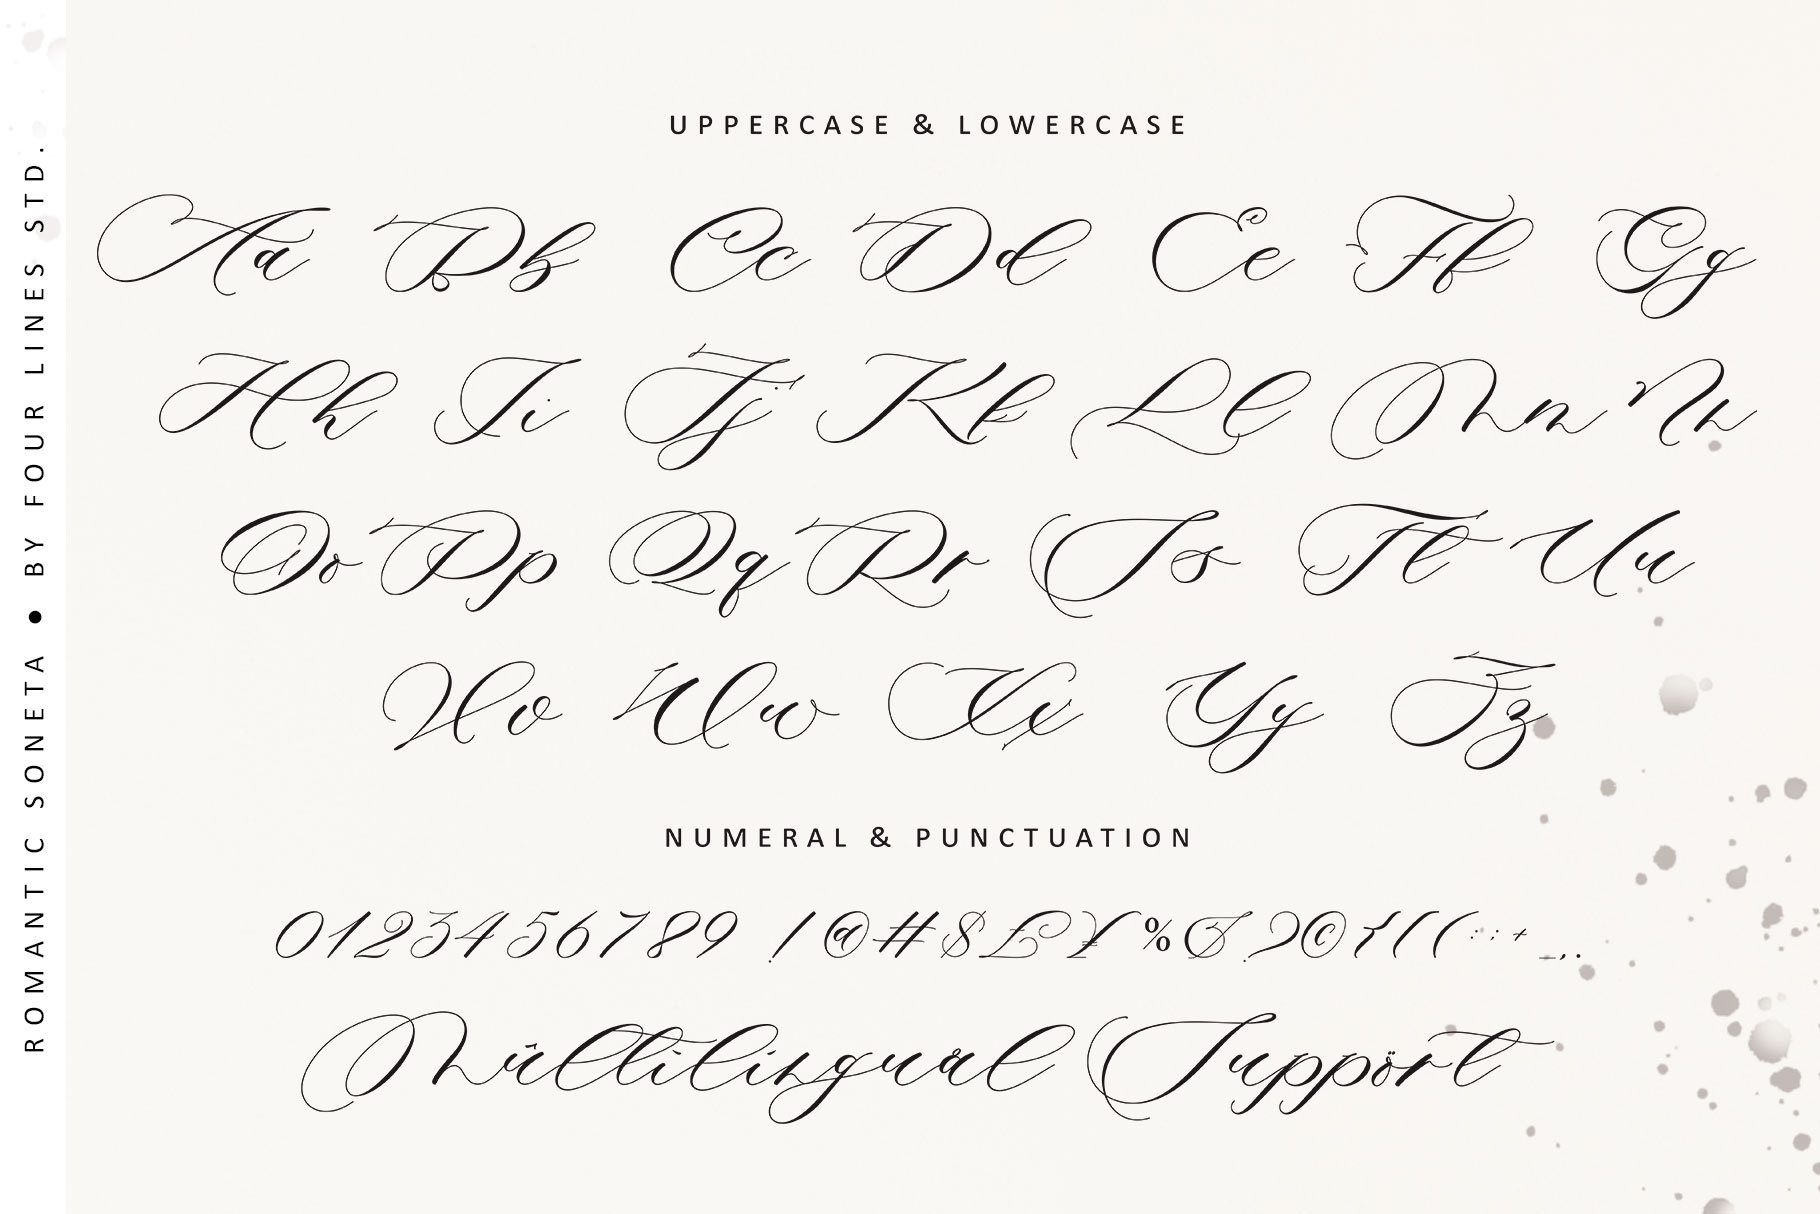 ROMANTIC SONETA • BY FOUR LINES STD.
UPPERCASE & LOWERCASE
Aa Bb Cc Dd Ee Ff Gg
Hh Ii Jj Kk Ll Mm Nn
Oo Pp Qq Rr Ss Tt Uu
Vv Ww Xx Yy Zz
NUMERAL & PUNCTUATION
0123456789 !@#$£¥%&?©{[(:;+_,.
Mûltilinguål Suppört